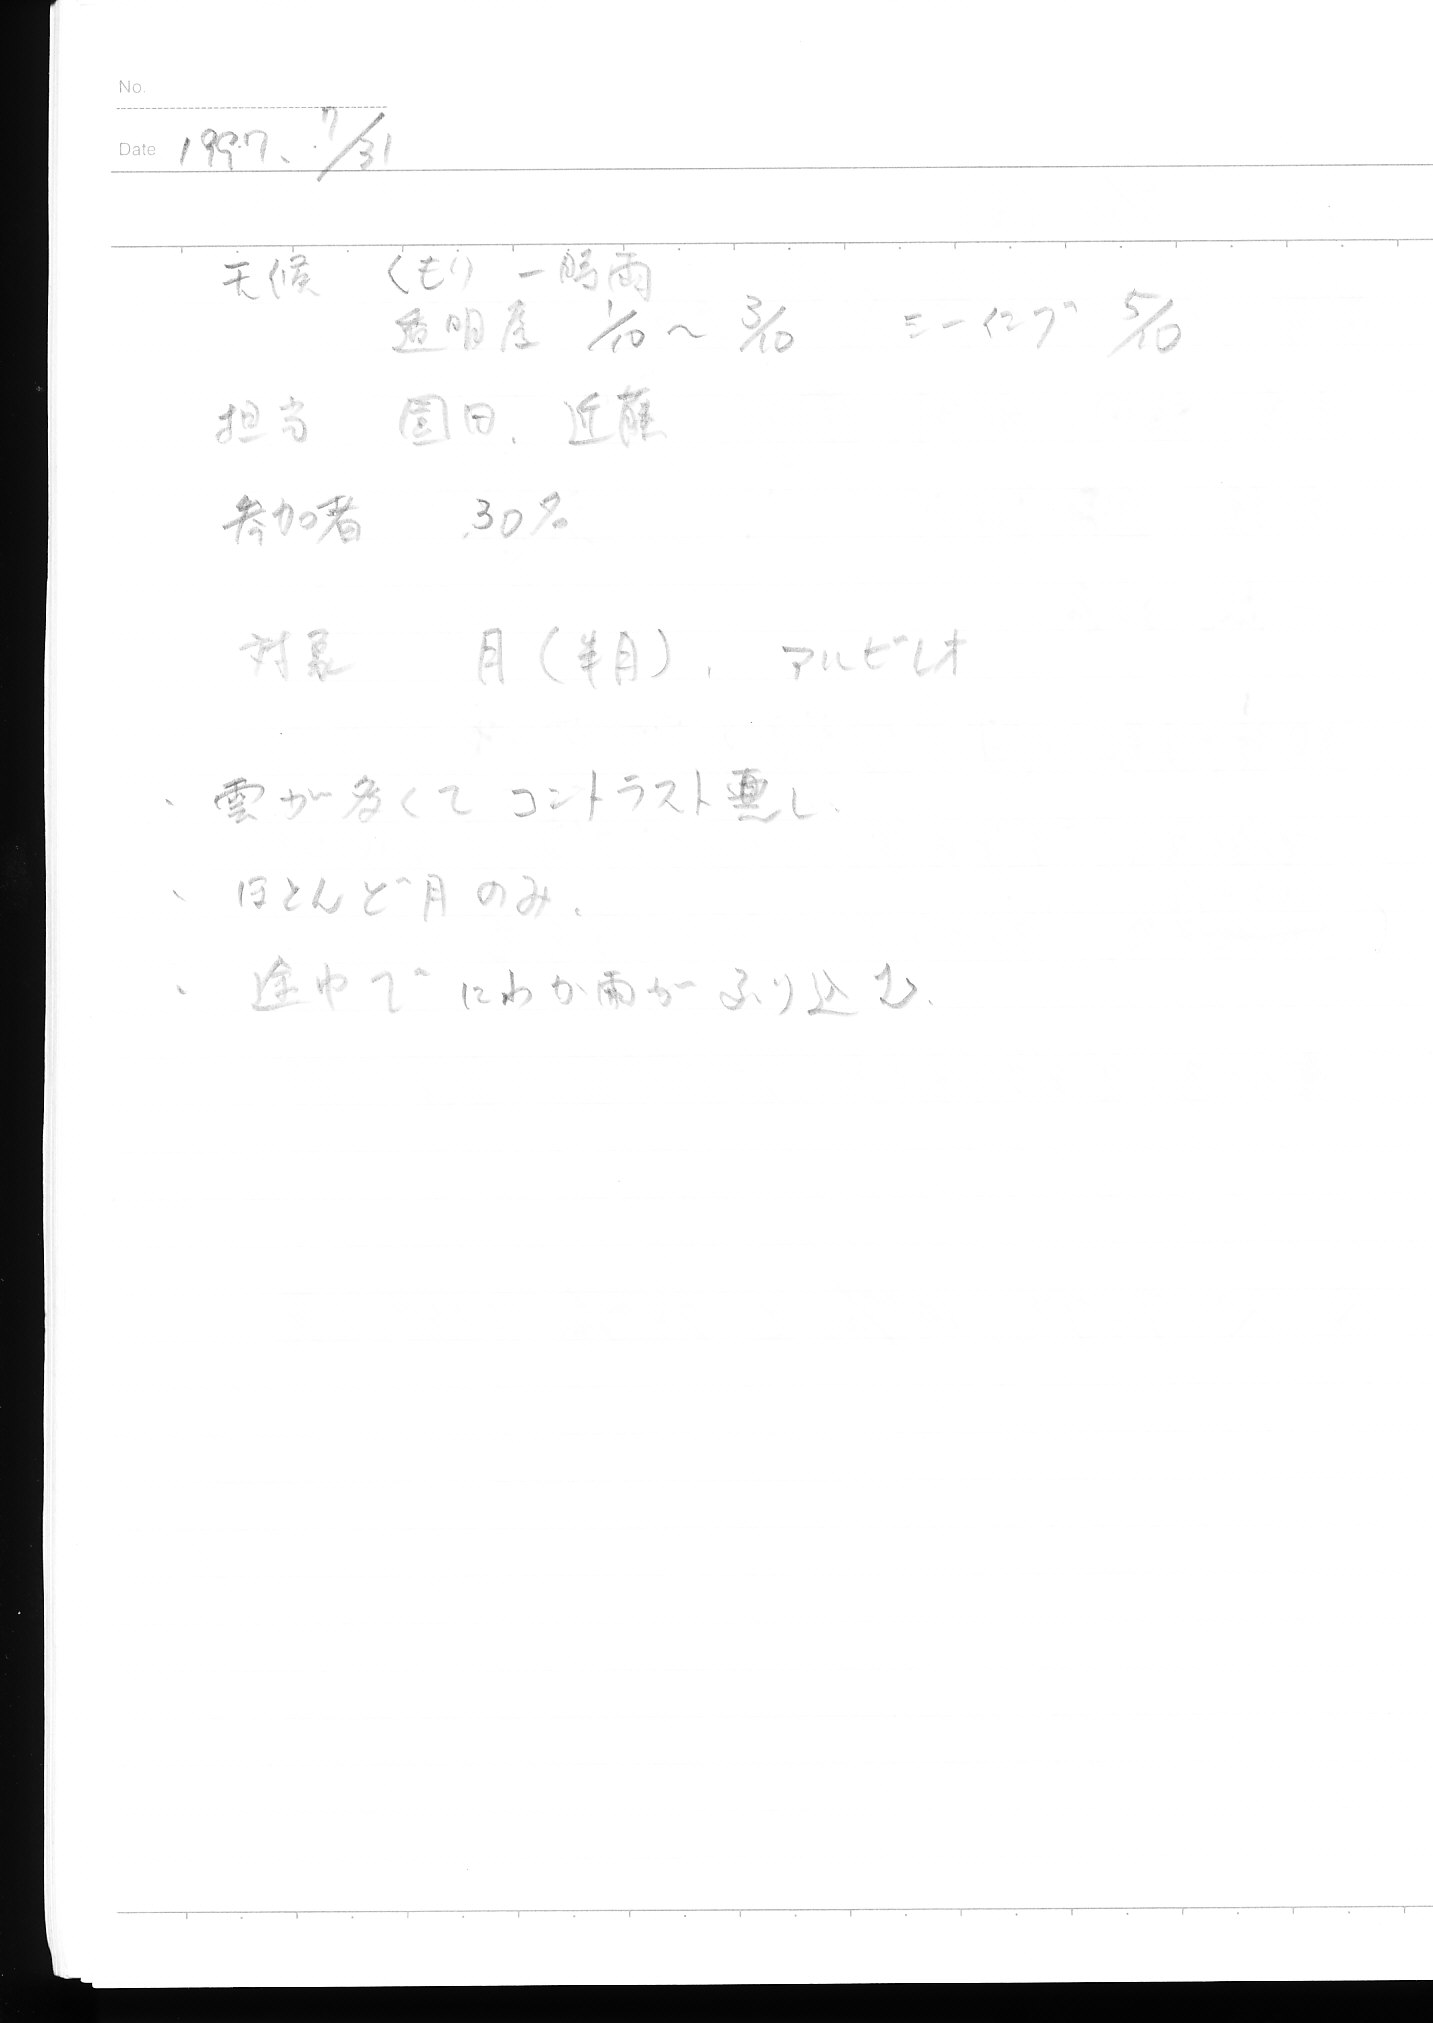 No.
Date 1997、7/31
天候 くもり 一時雨
透明度 1/10 〜 3/10 シーイング 5/10
担当 園田、近藤
参加者 30名
対象 月(半月)、アルビレオ
・雲が多くてコントラスト悪し。
・ほとんど月のみ。
・途中でにわか雨がふり込む。